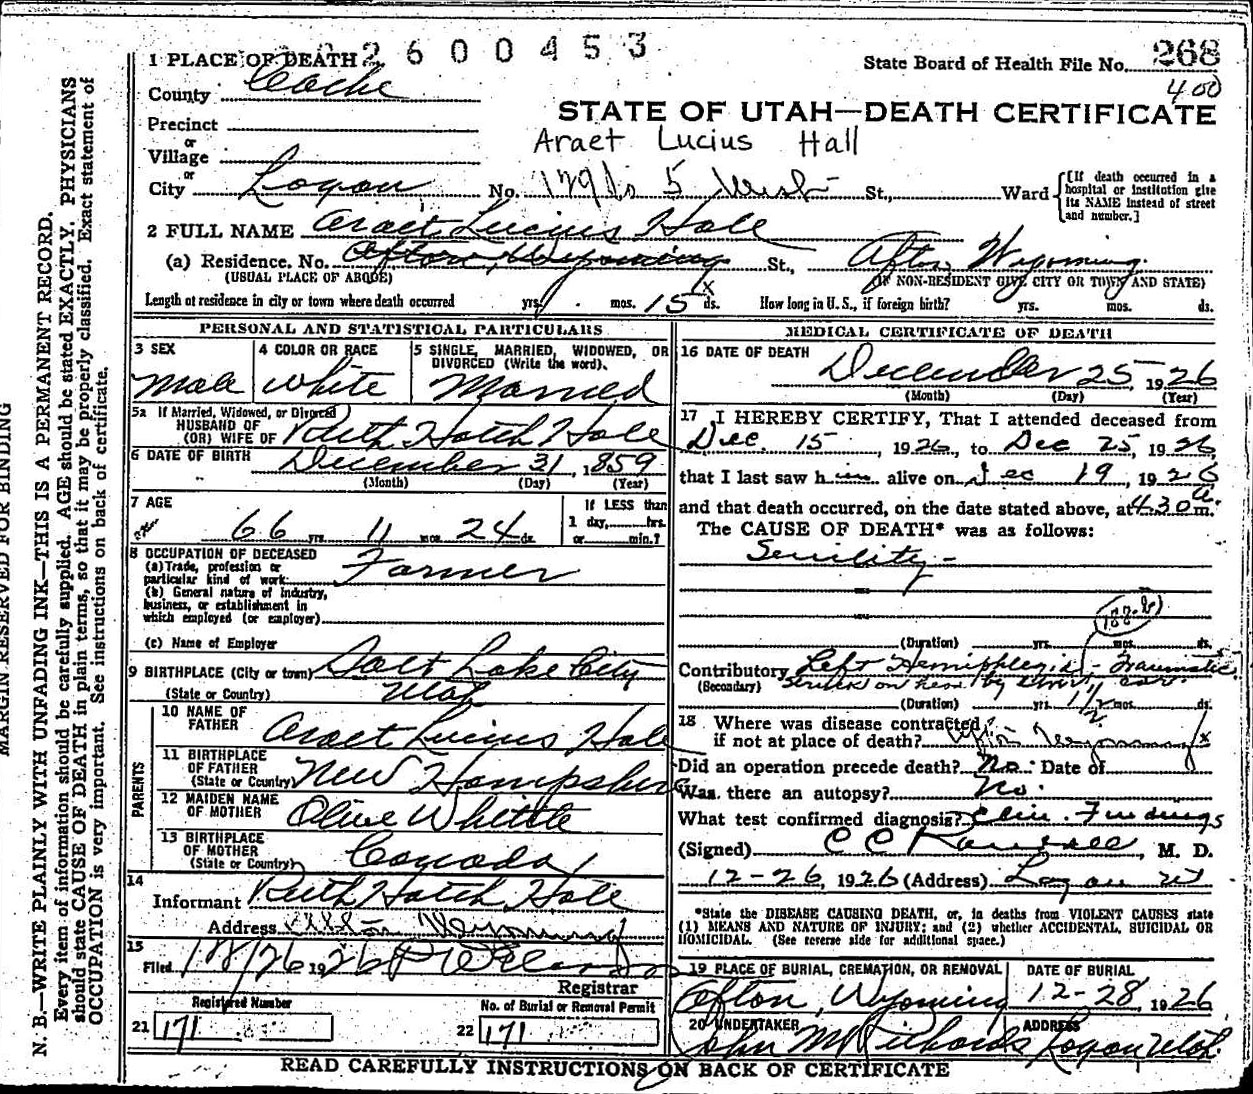 2600453
1 PLACE OF DEATH
State Board of Health File No. 268
400
County Cache
STATE OF UTAH—DEATH CERTIFICATE
Precinct
or
Village
Araet Lucius Hall
or
City Logan No. 179 So 5 West St., Ward
[If death occurred in a hospital or institution give its NAME instead of street and number.]
2 FULL NAME Araet Lucius Hale
(a) Residence. No. Afton, Wyoming St., Afton Wyoming
(USUAL PLACE OF ABODE) (IF NON-RESIDENT GIVE CITY OR TOWN AND STATE)
Length of residence in city or town where death occurred yrs. mos. 15 ds. How long in U. S., if foreign birth? yrs. mos. ds.
PERSONAL AND STATISTICAL PARTICULARS
3 SEX
Male
4 COLOR OR RACE
White
5 SINGLE, MARRIED, WIDOWED, OR DIVORCED (Write the word).
Married
5a If Married, Widowed, or Divorced
HUSBAND OF
(OR) WIFE OF Ruth Hatch Hale
6 DATE OF BIRTH December 31, 1859
(Month) (Day) (Year)
7 AGE
66 yrs. 11 mos. 24 ds.
If LESS than
1 day, hrs.
or min.?
8 OCCUPATION OF DECEASED
(a) Trade, profession or
particular kind of work: Farmer
(b) General nature of industry,
business, or establishment in
which employed (or employer)
(c) Name of Employer
9 BIRTHPLACE (City or town) Salt Lake City
(State or Country) Utah
PARENTS
10 NAME OF
FATHER Araet Lucius Hale
11 BIRTHPLACE
OF FATHER
(State or Country) New Hampshire
12 MAIDEN NAME
OF MOTHER Olive Whittle
13 BIRTHPLACE
OF MOTHER
(State or Country) Canada
14
Informant Ruth Hatch Hale
Address Afton Wyoming
15
Filed 12/26 1926
Registrar
Registered Number
21 171
No. of Burial or Removal Permit
22 171
MEDICAL CERTIFICATE OF DEATH
16 DATE OF DEATH
December 25, 1926
(Month) (Day) (Year)
17 I HEREBY CERTIFY, That I attended deceased from
Dec. 15, 1926, to Dec 25, 1926,
that I last saw him alive on Dec 19, 1926
and that death occurred, on the date stated above, at 4:30 a. m.
The CAUSE OF DEATH* was as follows:
Senility -
(Duration) yrs. mos. ds.
Contributory Left Hemiphlegia - Traumatic
(Secondary) struck on head by car
(Duration) yrs. 1 1/2 mos. ds.
18 Where was disease contracted,
if not at place of death? Afton Wyoming
Did an operation precede death? No. Date of
Was there an autopsy? No.
What test confirmed diagnosis? Clin. Findings
(Signed) C C Randall, M. D.
12-26, 1926 (Address) Logan Ut
*State the DISEASE CAUSING DEATH, or, in deaths from VIOLENT CAUSES state
(1) MEANS AND NATURE OF INJURY; and (2) whether ACCIDENTAL, SUICIDAL OR
HOMICIDAL. (See reverse side for additional space.)
19 PLACE OF BURIAL, CREMATION, OR REMOVAL
Afton, Wyoming
DATE OF BURIAL
12-28, 1926
20 UNDERTAKER
John M Richards
ADDRESS
Logan Utah
READ CAREFULLY INSTRUCTIONS ON BACK OF CERTIFICATE
MARGIN RESERVED FOR BINDING
N. B.—WRITE PLAINLY WITH UNFADING INK—THIS IS A PERMANENT RECORD.
Every item of information should be carefully supplied. AGE should be stated EXACTLY. PHYSICIANS
should state CAUSE OF DEATH in plain terms, so that it may be properly classified. Exact statement of
OCCUPATION is very important. See instructions on back of certificate.